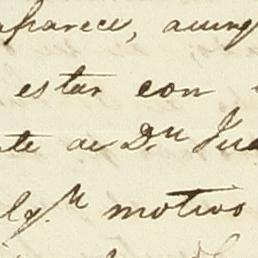 aparece, aunq
estar con
te de D.n Jua
lg.n motivo